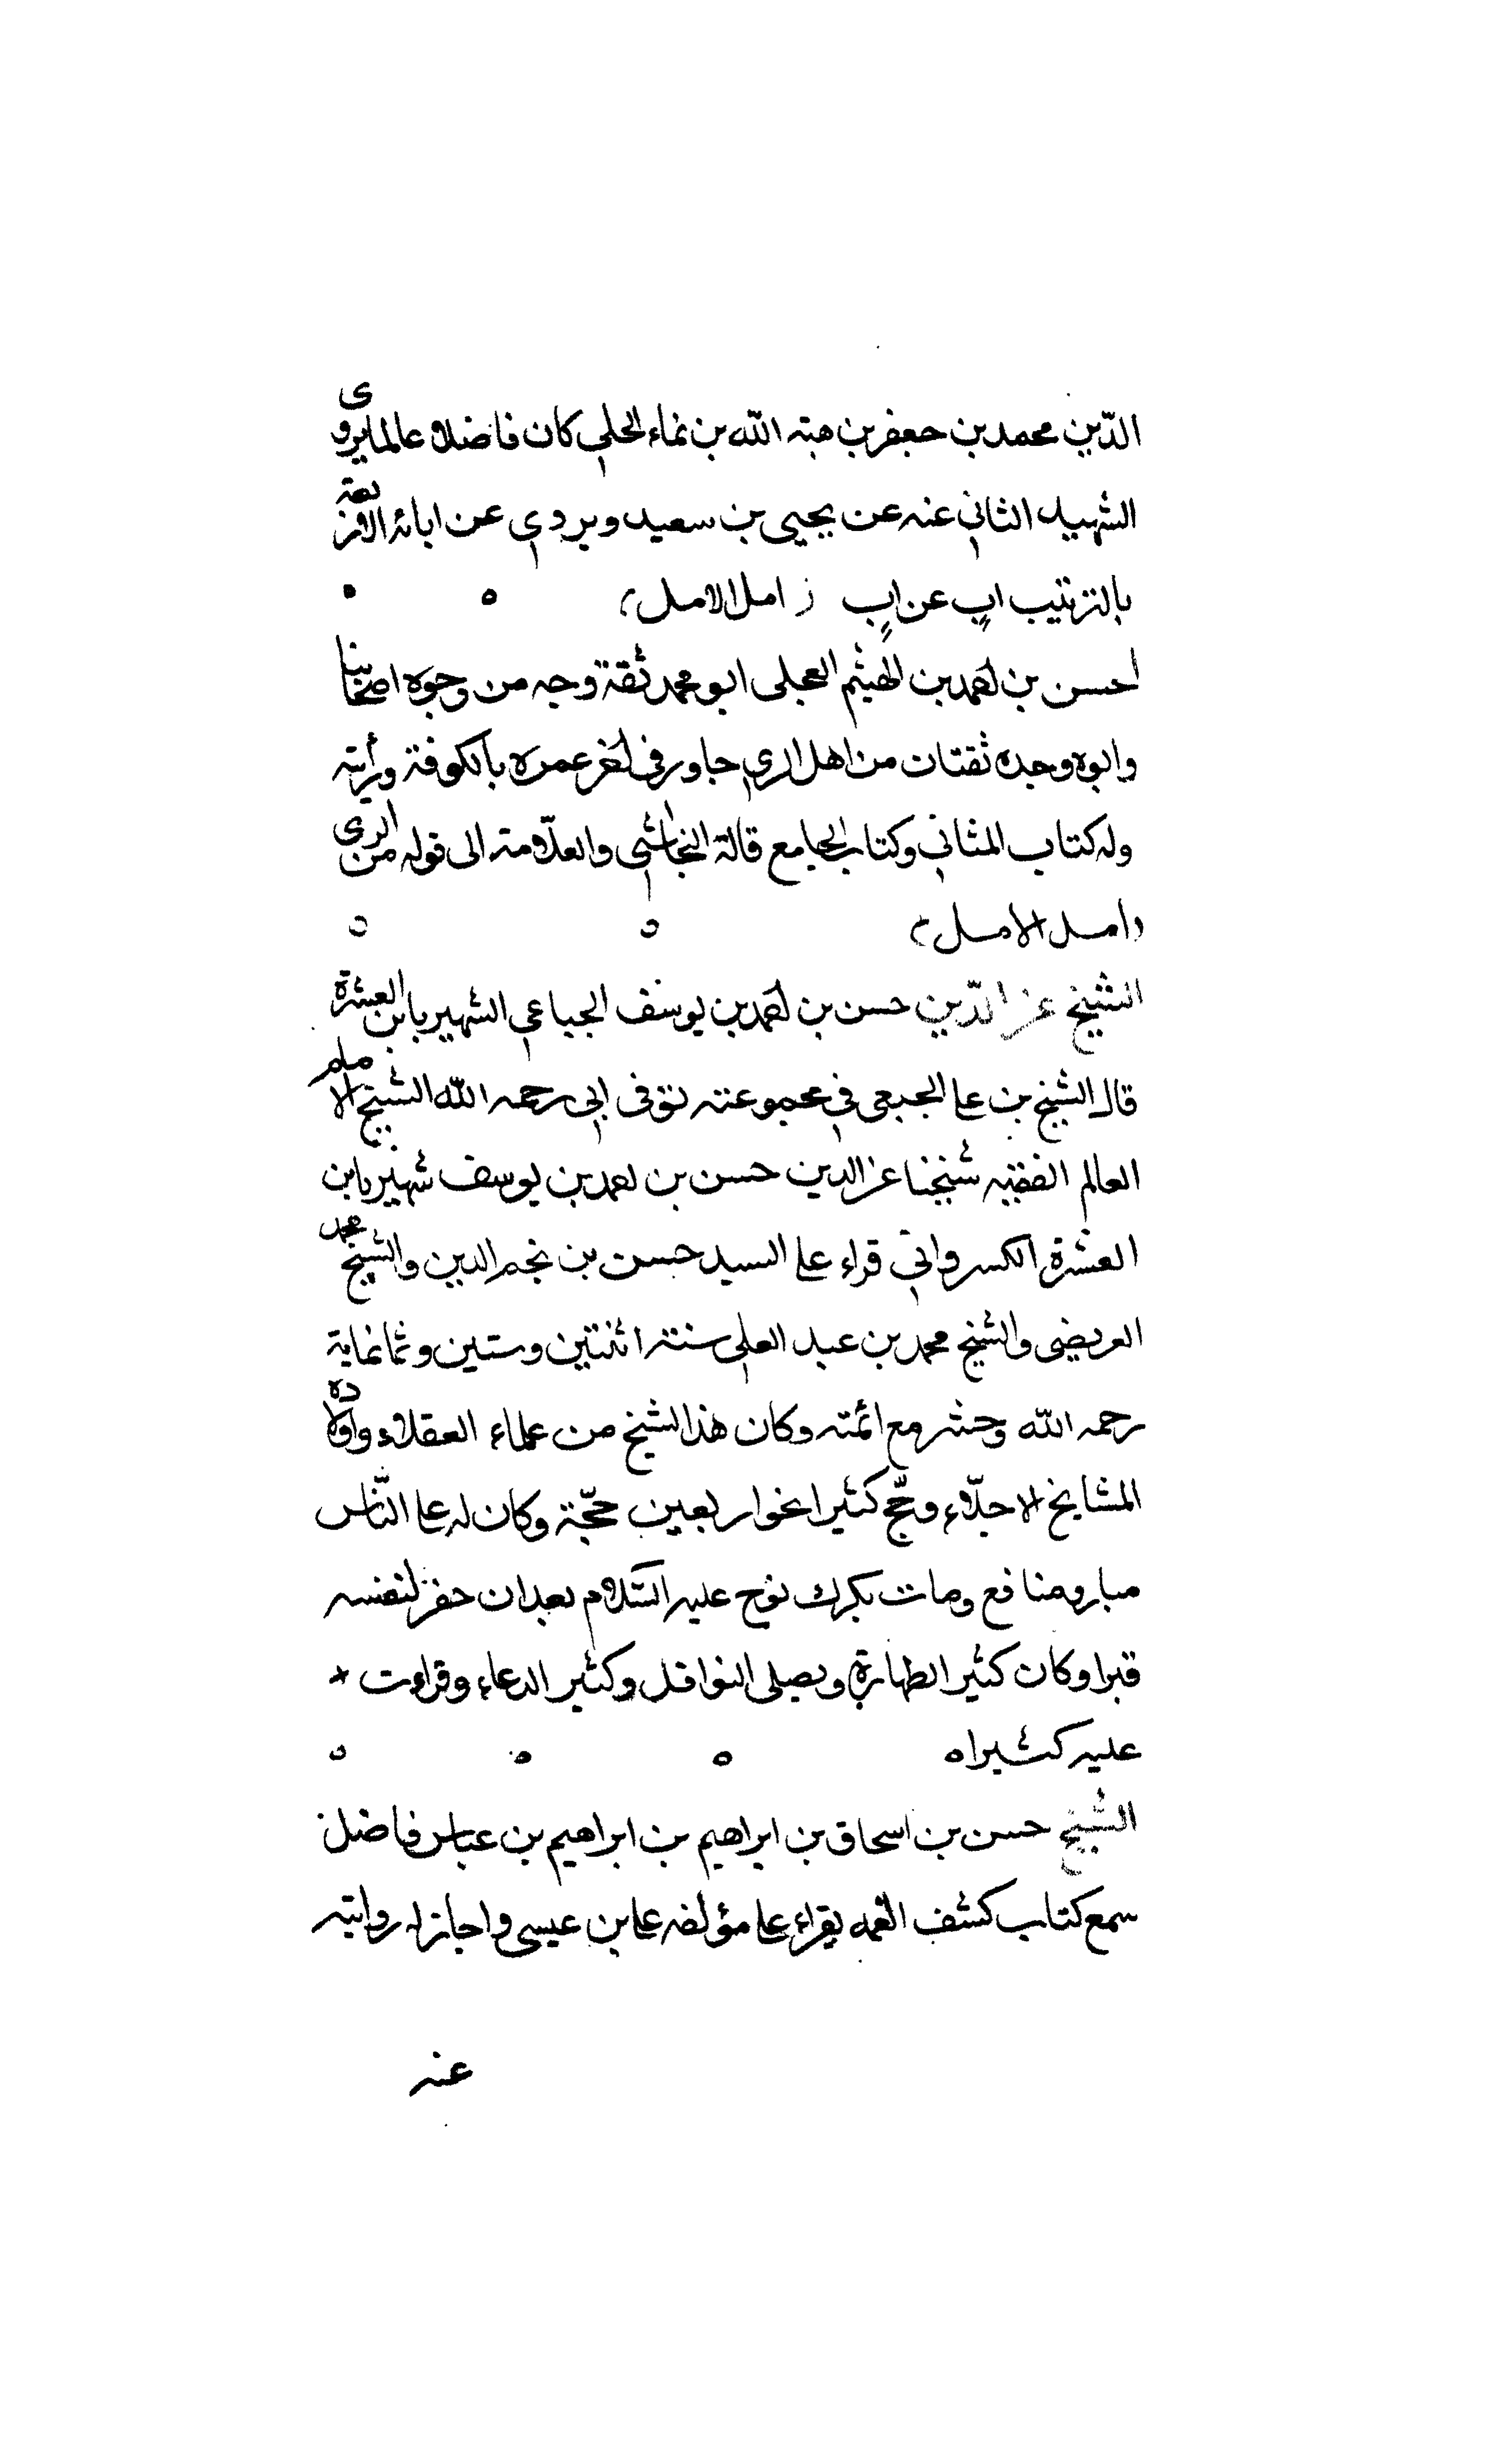 الدّين محمد بن جعفر بن هبته الله بن نماء الحلي كان فاضلا عالما يروى
الشهيد الثاني عنه عن يحيى بن سعيد ويروي عن ابائه الاربعة
بالترتيب اب عن اب ز امل الامل ؛
احسن بن احمد بن الهيثم العجلى ابو محمد ثقة وجه من وجوه اصحابنا
وابوه وجده ثقتان من اهل الري جاور في اخر عمره بالكوفة ورأيته
وله كتاب المثاني وكتاب الجامع قاله النجاشي والعلّامة الى قوله من الرى
(امل الامل)
الشيخ عز الدّين حسن بن احمد بن يوسف الجباعي الشهير بابن العشرة
قال الشيخ بن على الجبعي في مجموعته توفى ابي رحمه الله الشيخ الامام
العالم الفقيه شيخنا عز الدين حسن بن احمد بن يوسف شهير بابن
العشرة الكسرواني قراء على السيد حسن بن نجم الدين والشيخ محمد
العريضي والشيخ محمد بن عبد العلي سنة اثنتين وستين وثمانماية
رحمه الله وحشر مع ائمته وكان هذا الشيخ من علماء العقلاء واولاده
المشايخ الاجلّاء وحجّ كثيرا نحوا ربعين حجّة وكان له على النّاس
مبار ومنافع ومات بكرك نوح عليه السّلام بعد ان حفر لنفسه
قبرا وكان كثير الطهارة ويصلى النوافل وكثير الدعاء وقراءت
عليه كثيراه
الشيخ حسن بن اسحاق بن ابراهيم بن ابراهيم بن عباس فاضل
سمع كتاب كشف الغمه يقراء على مؤلفه على بن عيسى واجاز له روايته
عنه